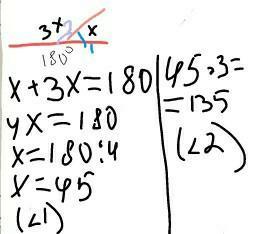 3x x
180°
x+3x=180
4x=180
x=180:4
x=45
(∠1)
45·3=
=135
(∠2)